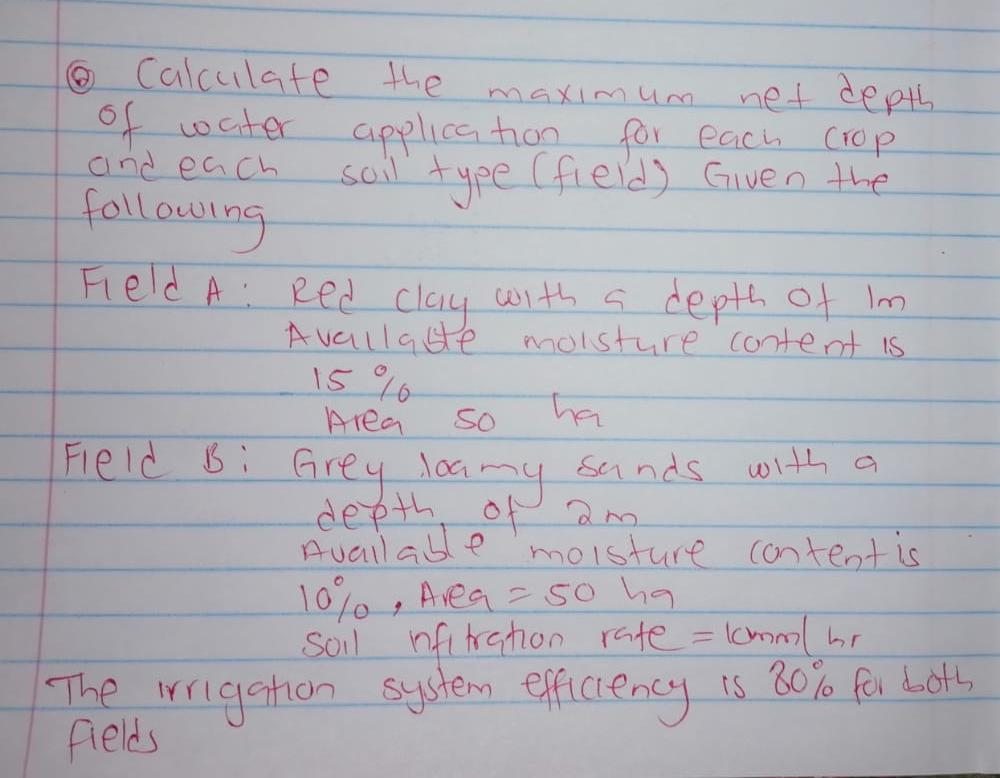 ⓪ Calculate the maximum net depth
of water application for each crop
and each soil type (field) Given the
following
Field A: Red clay with a depth of 1m
Available moisture content is
15 %
Area 50 ha
Field B: Grey loamy sands with a
depth of 2m
Available moisture content is
10%, Area = 50 ha
Soil nfitration rate = /hr
The irrigation system efficiency is 80% for both
fields